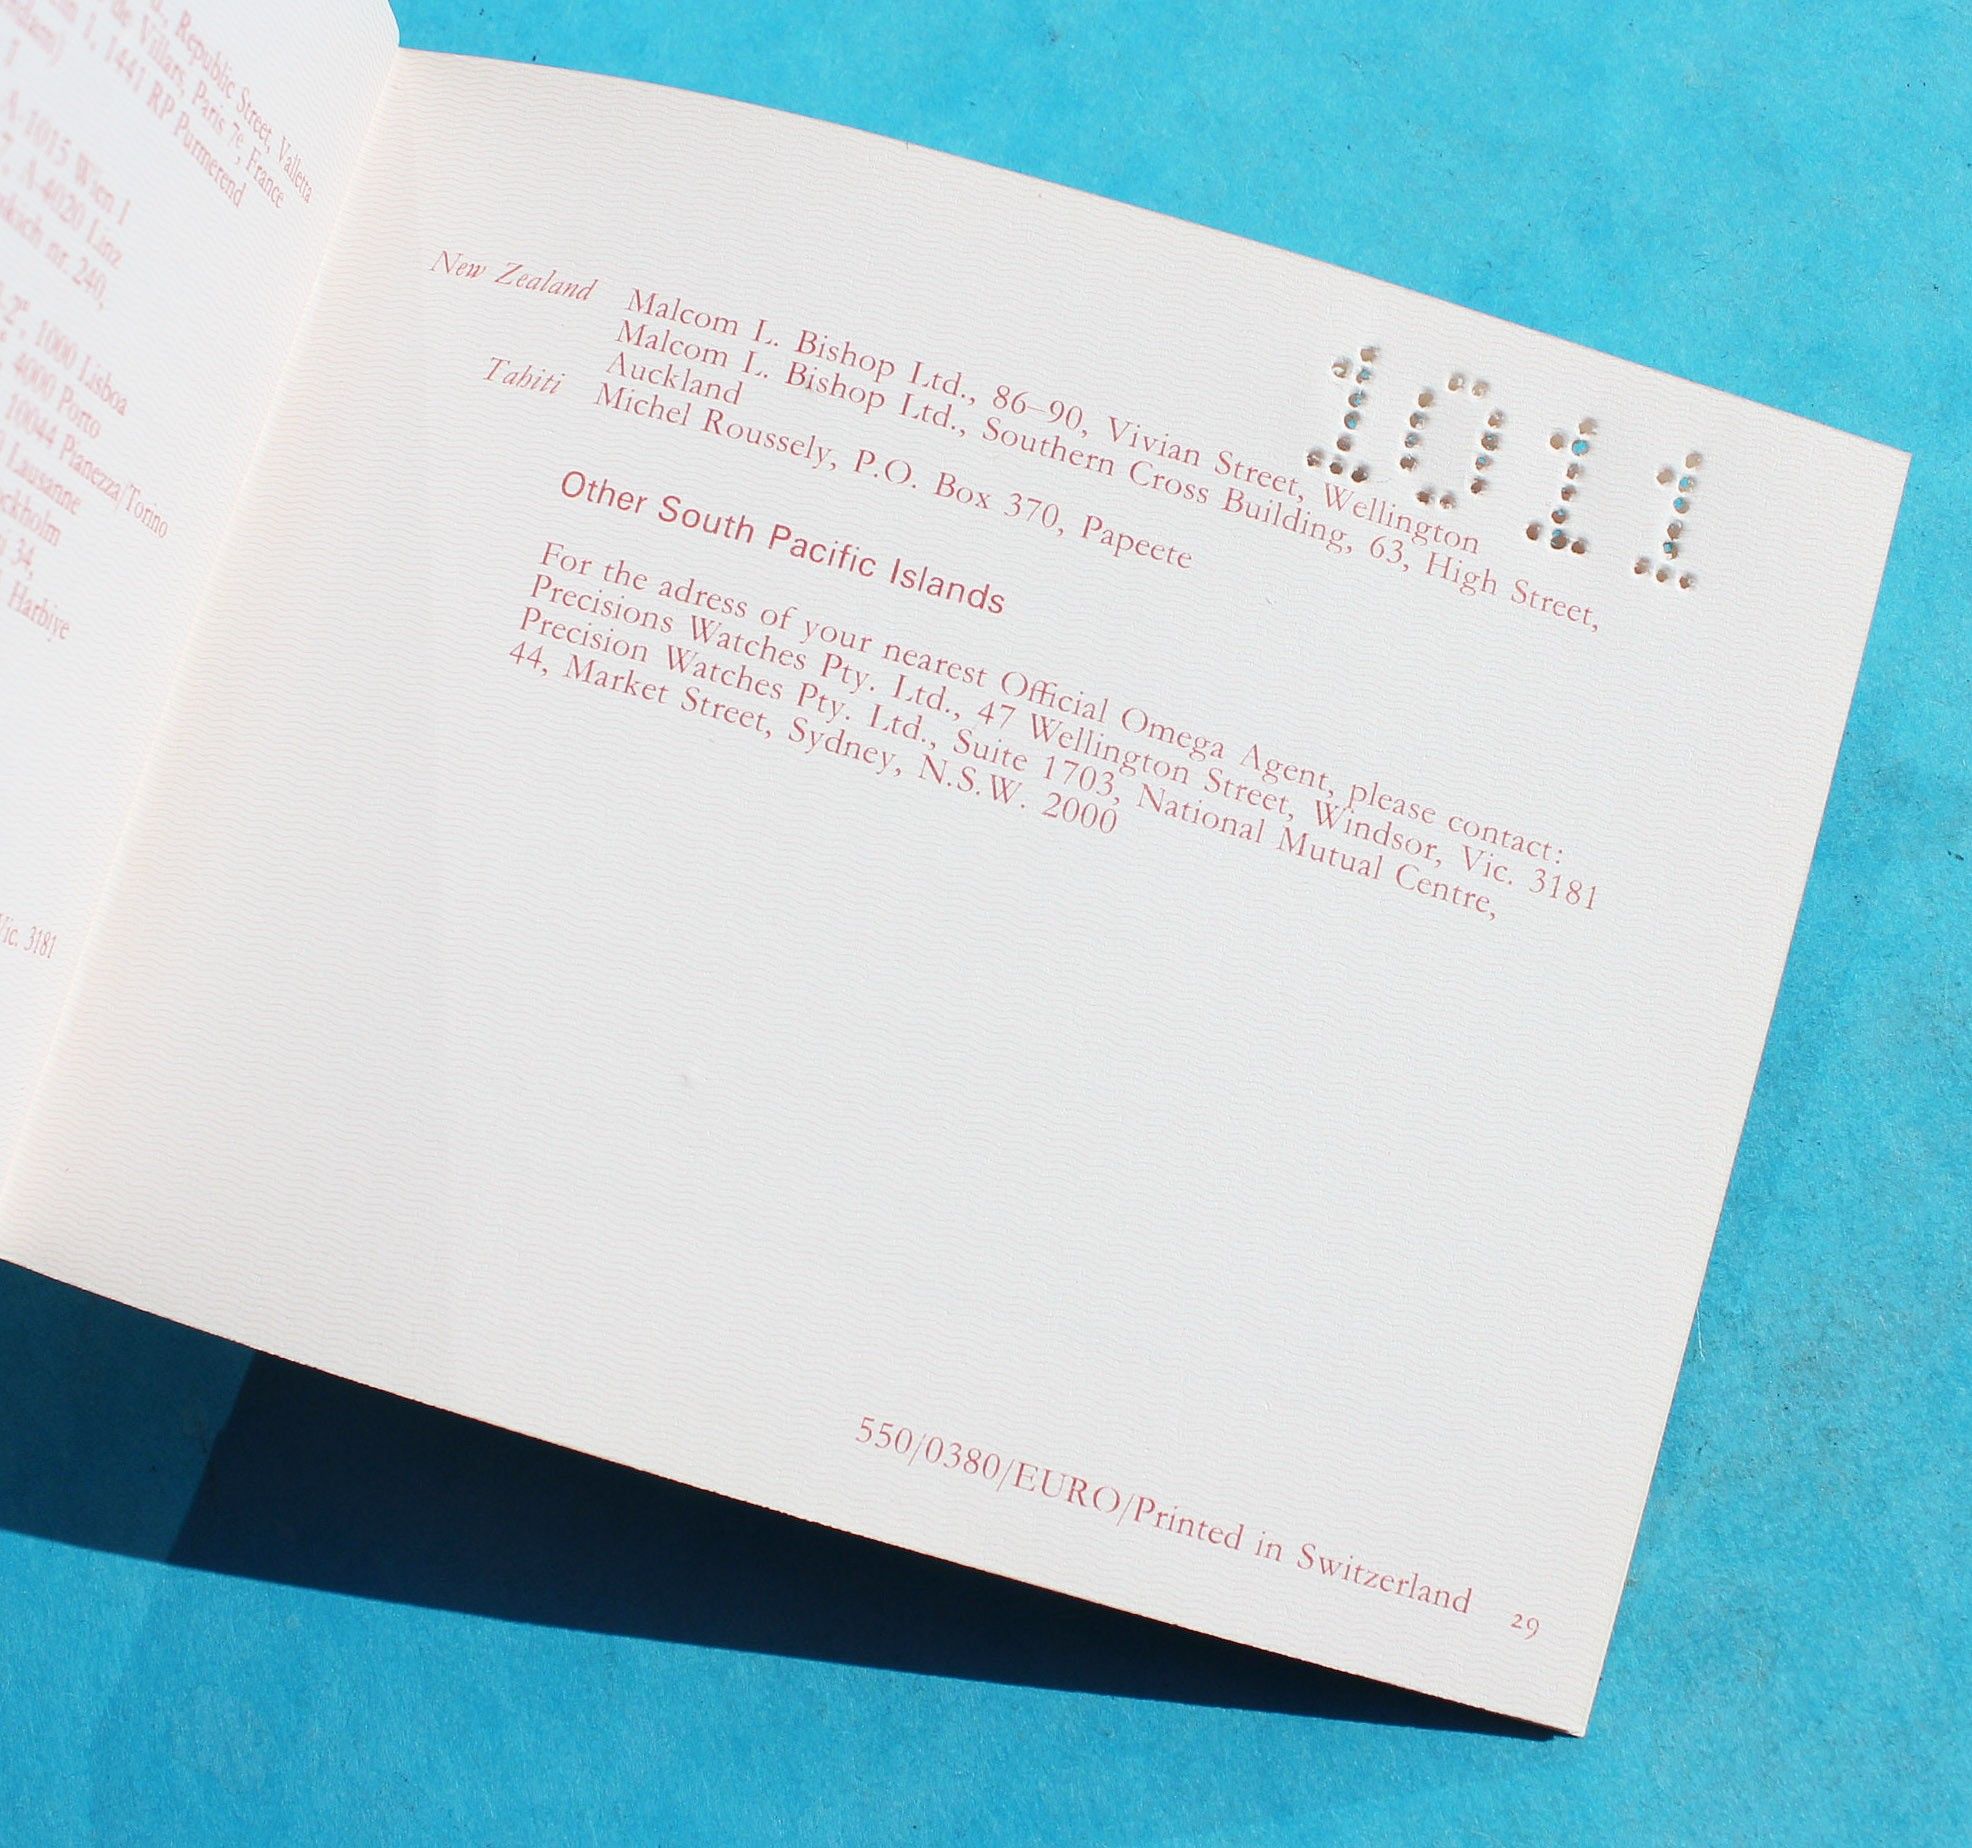 Republic Street, Valletta
de Villars, Paris 7e, France
1, 1441 RP Purmerend
1
A-1015 Wien 1
7, A-4020 Linz
nr. 240,
1000 Lisboa
4000 Porto
10044 Pianezza/Torino
Lausanne
34,
Harbiye
Vic. 3181
1011
New Zealand Malcom L. Bishop Ltd., 86–90, Vivian Street, Wellington
Malcom L. Bishop Ltd., Southern Cross Building, 63, High Street,
Auckland
Tahiti Michel Roussely, P.O. Box 370, Papeete
Other South Pacific Islands
For the adress of your nearest Official Omega Agent, please contact:
Precisions Watches Pty. Ltd., 47 Wellington Street, Windsor, Vic. 3181
Precision Watches Pty. Ltd., Suite 1703, National Mutual Centre,
44, Market Street, Sydney, N.S.W. 2000
550/0380/EURO/Printed in Switzerland 29